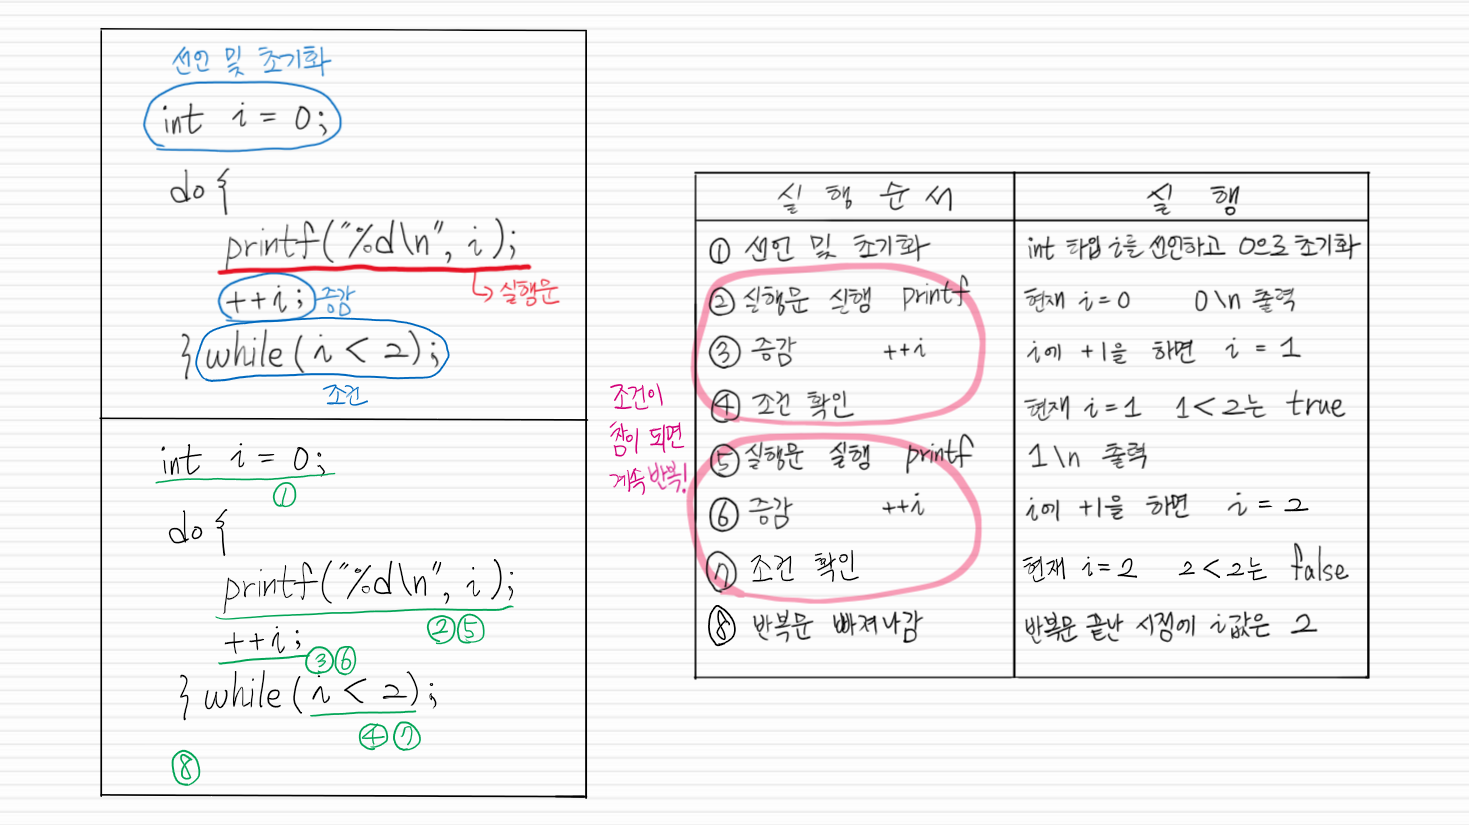 선언 및 초기화
int i = 0;
do {
printf("%d\n", i);
→ 실행문
++i; 증감
} while (i < 2);
조건
int i = 0;
①
do {
printf("%d\n", i);
②⑤
++i;
③⑥
} while (i < 2);
④⑦
⑧
조건이
참이 되면
계속 반복!
실행순서 실행
① 선언 및 초기화 int 타입 i를 선언하고 0으로 초기화
② 실행문 실행 printf 현재 i=0 0\n 출력
③ 증감 ++i i에 +1을 하면 i = 1
④ 조건 확인 현재 i=1 1<2는 true
⑤ 실행문 실행 printf 1\n 출력
⑥ 증감 ++i i에 +1을 하면 i = 2
⑦ 조건 확인 현재 i=2 2<2는 false
⑧ 반복문 빠져나감 반복문 끝난 시점에 i값은 2